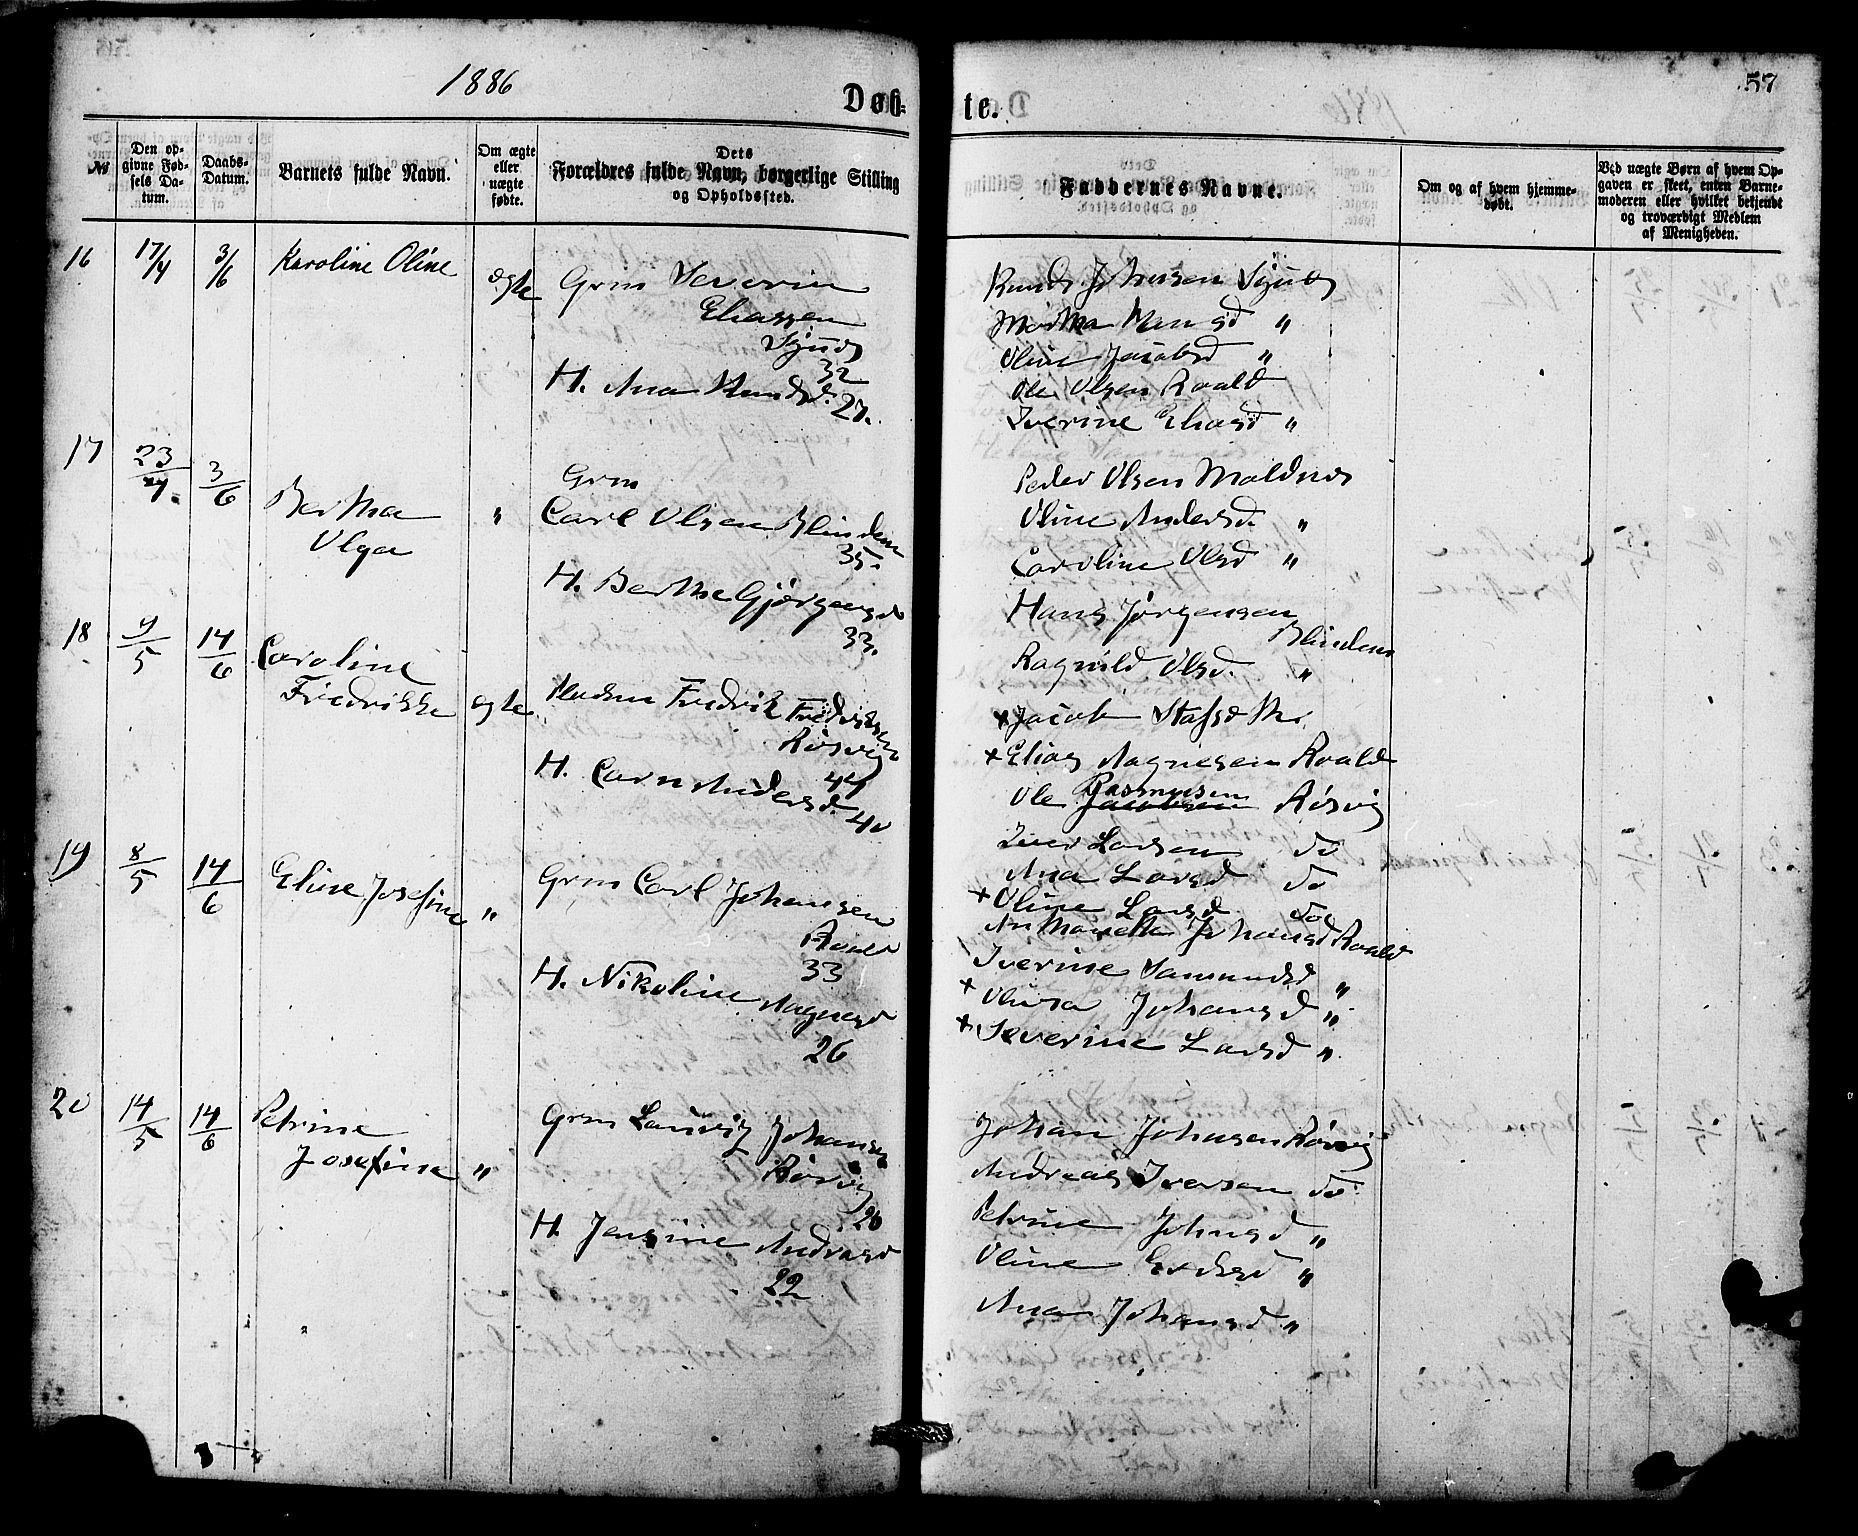 1886
Døb-
te.
57
No
Den op-
givne Fød-
sels Da-
tum.
Daabs-
Datum.
Barnets fulde Navn.
Om ægte
eller
uægte
fødte.
Dets
Forældres fulde Navn, borgerlige Stilling
og Opholdssted.
Faddernes Navne.
Om og af hvem hjemme-
døbt.
Ved uægte Børn af hvem Op-
gaven er skeet, enten Barne-
moderen eller hvilket bekjendt
og troværdigt Medlem
af Menigheden.
16
17/4
3/6
Karoline Oline
ægte
Grm Severin
Eliassen
32
H. Ana Knudsd. 27.
Knud Johnsen
Martha Hansd "
Oline Jacobsd "
Ole Olsen Roald
Iverine Eliasd "
17
23/4.
3/6
Bertha
Olga
"
Grm
Carl Olsen Blindem
35.
H. Berthe Gjørgensd
33.
Peder Olsen Moldnes
Oline Andersd. "
Caroline Olsd "
Hans Jørgensen
Blindem
Ragnild Olsd. "
18
9/5
14/6
Caroline
Fredrikke
ægte
Fredrik Fredriksen
Røsvig
44
H. Carn Andersd.
40
+ Jacob
+ Elias Magnesen Roald
Ole Rasmusen Røsvig
Iver Larsen do
Ana Larsd do
+ Oline Larsd do
19
8/5
14/6
Eline Josefine
"
Grm Carl Johansen
Roald
33
H. Nikoline Magnesd
26
An Maretta Johansd Roald
Iverine Samundsd "
+ Olina Johansd "
+ Severine Larsd "
20
14/5
14/6
Petrine
Josefine
"
Grm Laurviz Johansen
Røsvig
26
H. Jensine Andreasd
22
Johan Johnsen Røsvig
Andreas Iversen do
Petrine Johnsd "
Oline "
Ana Johansd "